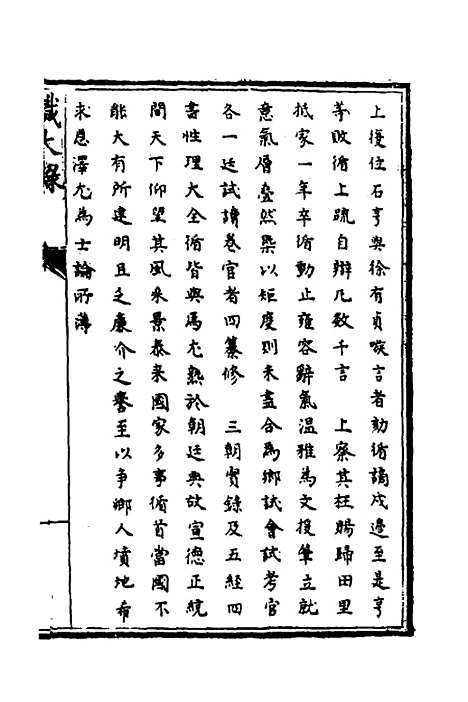 上復位石亨與徐有貞嗾言者劾循謫戍邊至是亨
等敗循上疏自辯凡数千言　上察其枉賜歸田里
抵家一年卒循動止雍容辭氣溫雅為文援筆立就
意氣層疊然槩以矩度則未盡合為鄉試會試考官
各一廷試讀卷官者四纂修　三朝實錄及五經四
書性理大全循皆與焉尤熟於朝廷典故宣德正統
間天下仰望其風采景泰来國家多事循首當國不
能大有所建明且乏廉介之譽至以争鄉人墳地布
求恩澤尤為士論所薄
識大録